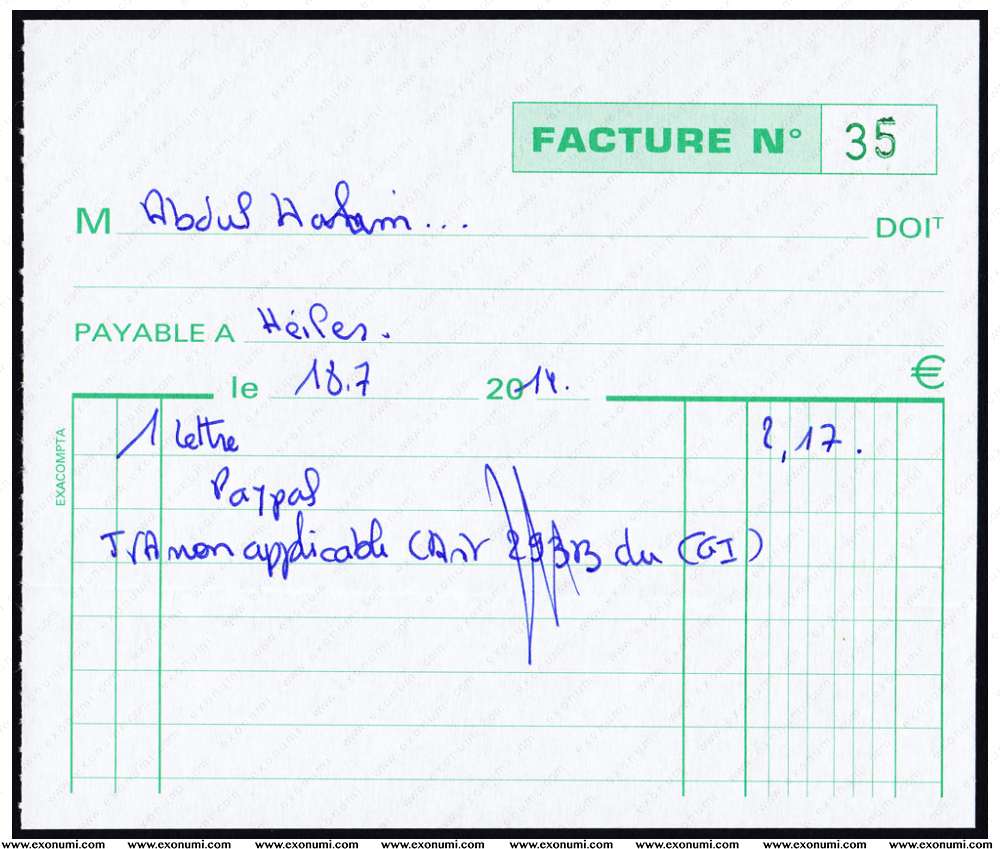 FACTURE N° 35
M Abdul Halim... DOIT
PAYABLE A
le 18.7 2014. €
EXACOMPTA
1 Lettre 2,17.
Paypal
TVA non applicable (Art 293B du CGI)
www.exonumi.com www.exonumi.com www.exonumi.com www.exonumi.com www.exonumi.com www.exonumi.com www.exonumi.com www.exonumi.com